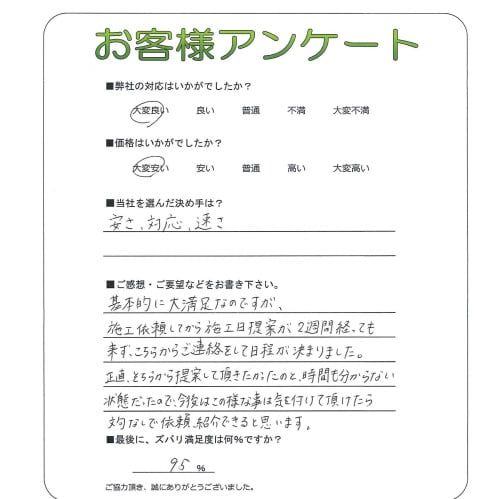 お客様アンケート
■弊社の対応はいかがでしたか?
大変良い 良い 普通 不満 大変不満
■価格はいかがでしたか?
大変安い 安い 普通 高い 大変高い
■当社を選んだ決め手は?
安さ、対応、速さ
■ご感想・ご要望などをお書き下さい。
基本的に大満足なのですが、
施工依頼してから施工日提案が2週間経っても
来ず、こちらからご連絡をして日程が決まりました。
正直、そちらから提案して頂きたかったのと、時間も分からない
状態だったので、今後はこの様な事は気を付けて頂けたら
文句なしで依頼、紹介できると思います。
■最後に、ズバリ満足度は何%ですか?
95 %
ご協力頂き、誠にありがとうございました。